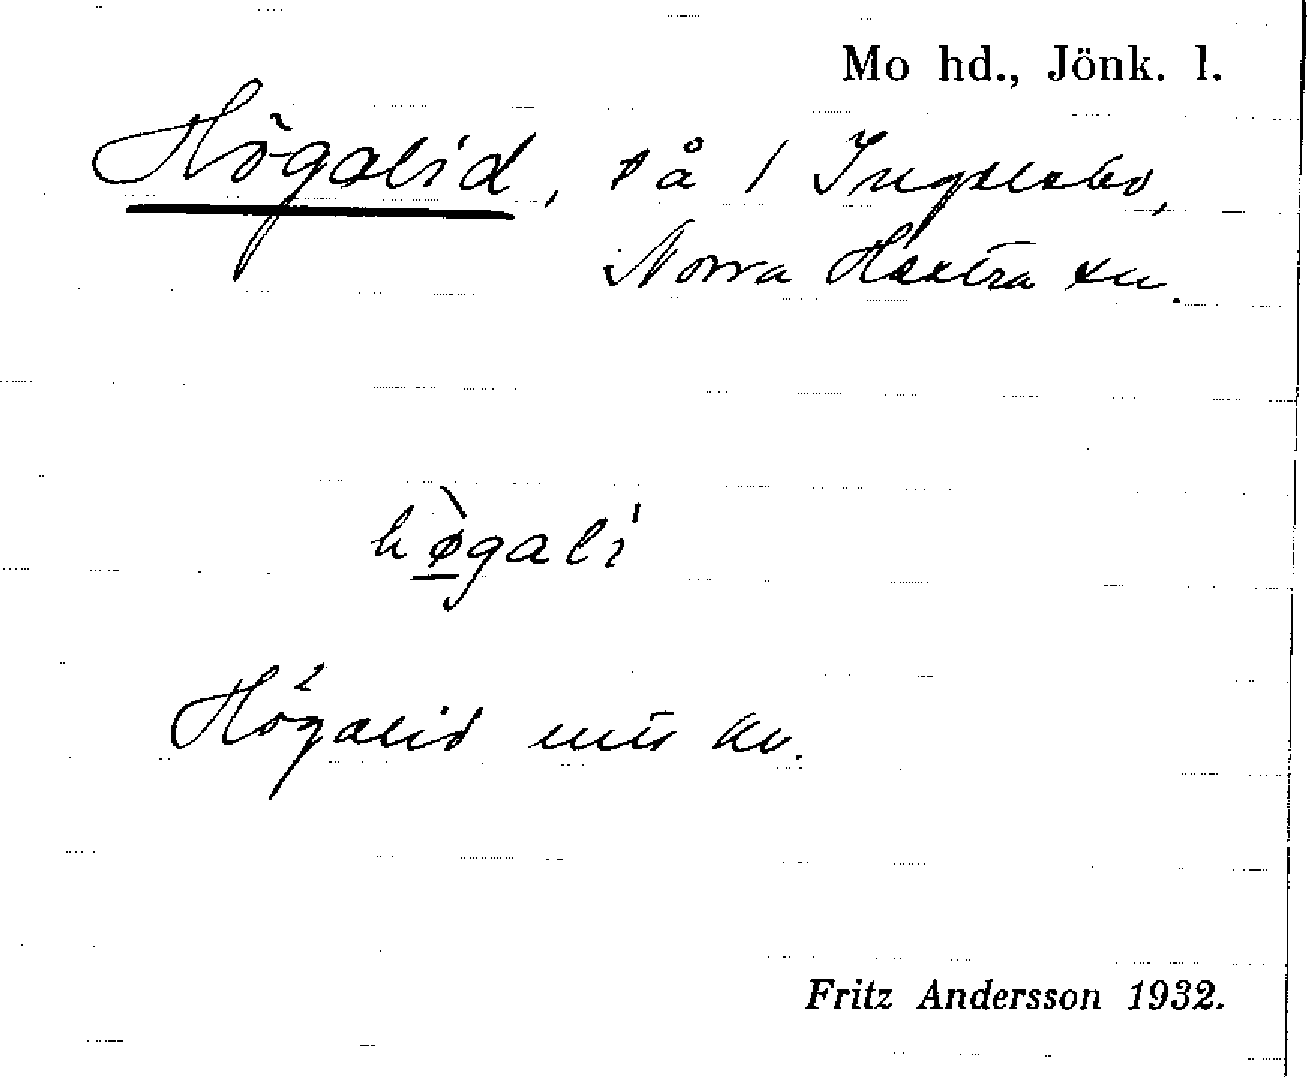 Mo hd., Jönk. l.
Högalid, på 1 Ingelsbo,
Norra Hestra sn.
hø̀gali
Högalid
Fritz Andersson 1932.